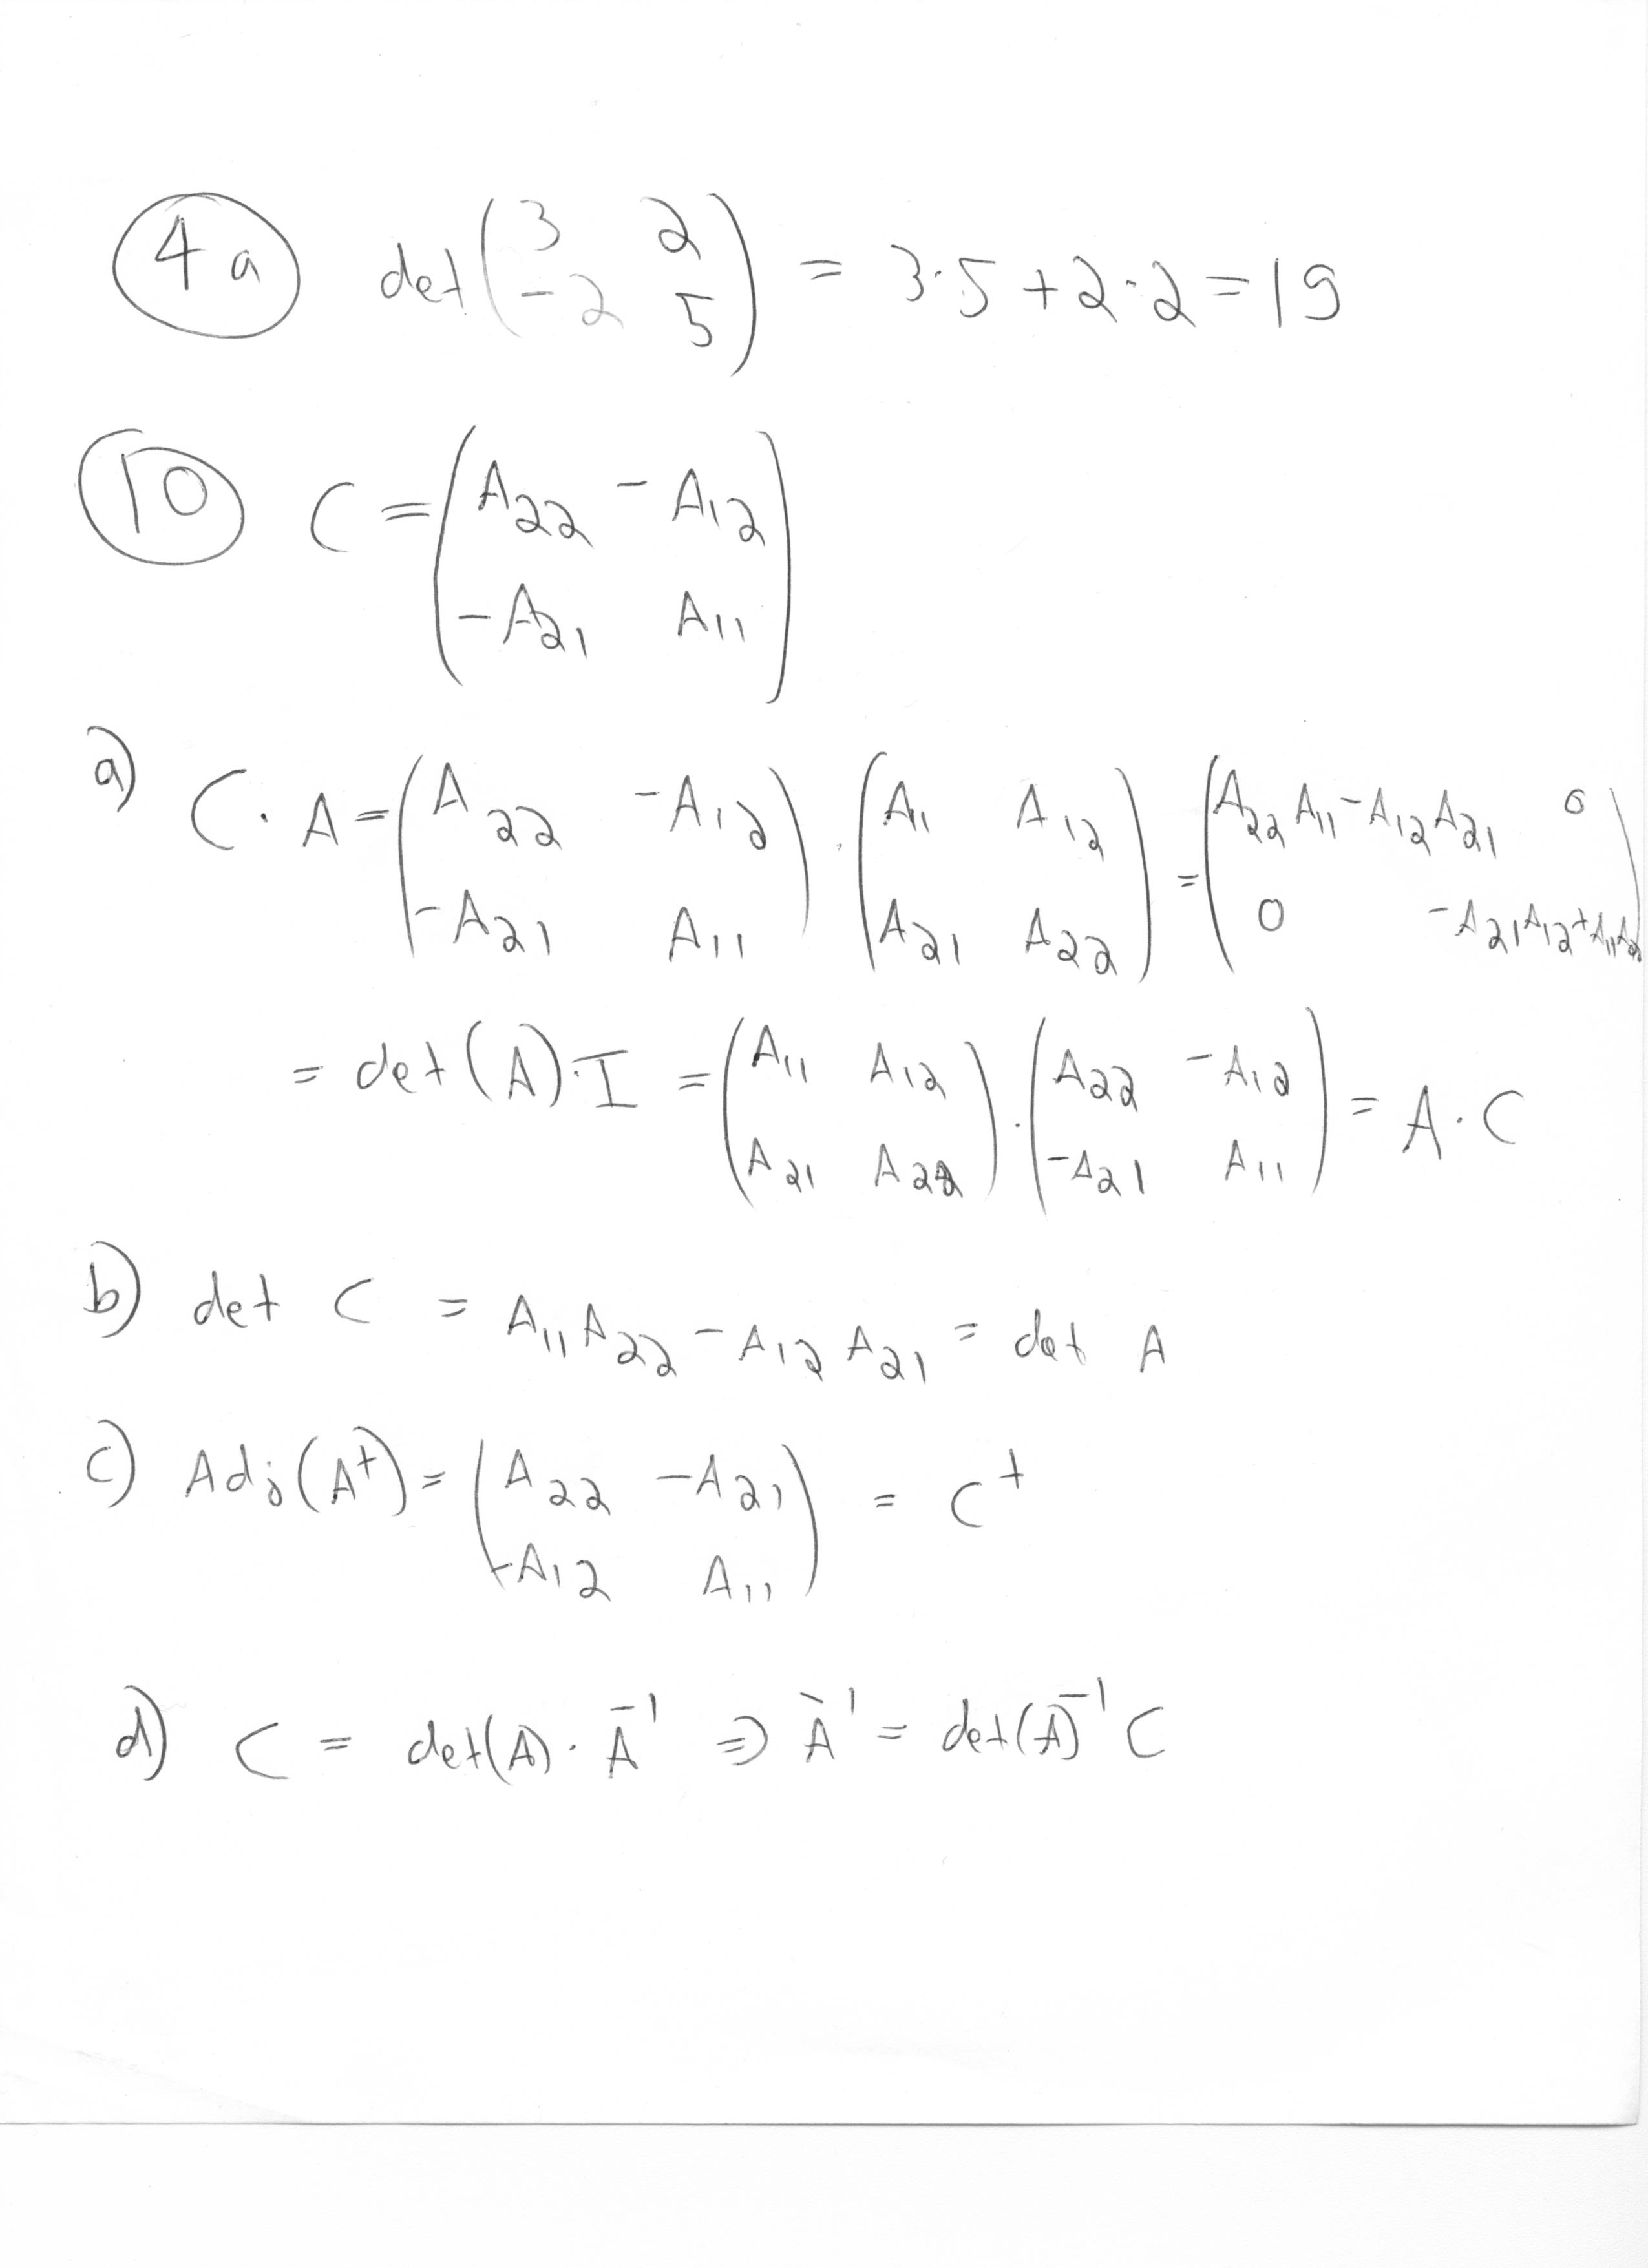 4a det(3 2
-2 5) = 3·5+2·2=19
10 C = (A22 -A12
-A21 A11)
a) C·A = (A22 -A12
-A21 A11) · (A11 A12
A21 A22) = (A22 A11 - A12 A21 0
0 -A21 A12 + A11 A2
= det(A)·I = (A11 A12
A21 A22) · (A22 -A12
-A21 A11) = A·C
b) det C = A11 A22 - A12 A21 = det A
c) Adj(A^t) = (A22 -A21
-A12 A11) = C^t
d) C = det(A)·A^-1 ⇒ A^-1 = det(A)^-1 C